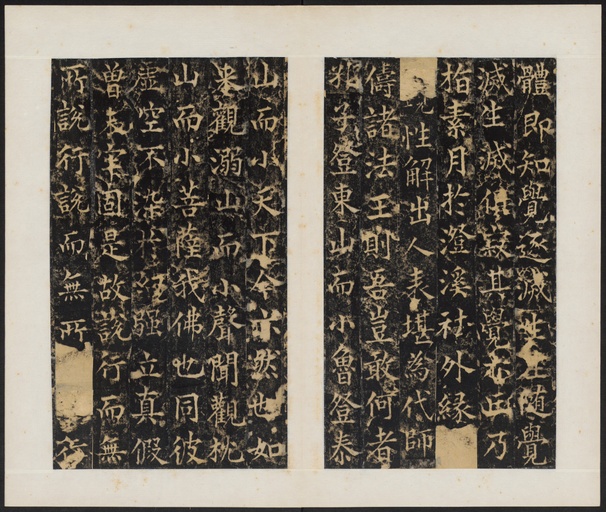 體即知覺逐滅生生隨覺
滅生滅俱寂其覺亦正乃
指素月於澄溪袪外緣
性解出人表堪為代師
儔諸法王則吾豈敢何者
孔子登東山而小魯登泰
山而小天下今亦然也如
來觀溺山而小聲聞觀枕
山而小菩薩我佛也同彼
虛空不染強立真假
曾牢固是故說行而無
所說行說而無所行